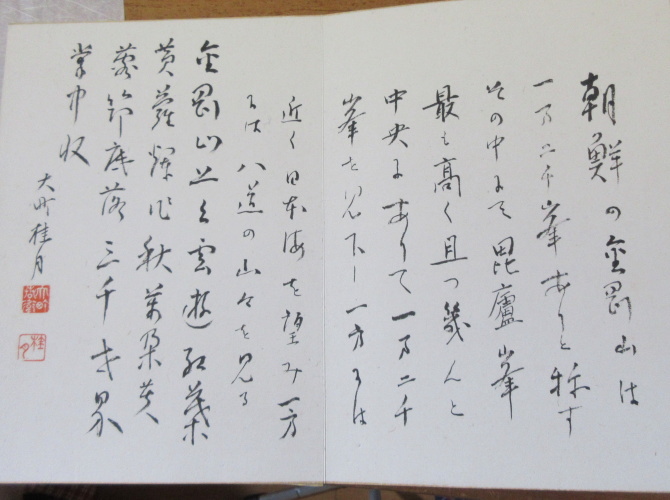 朝鮮の金剛山は
一万二千峯ありと称す
その中にて毘廬峯
最も高く且つ幾んと
中央にありて一万二千
峯を見下し一方には
近く日本海を望み一方
には八道の山々を見る
金剛山上雲遊紅葉
黄爛作秋萬朶芙
蓉底落三千世界
掌中收
大町桂月
桂月